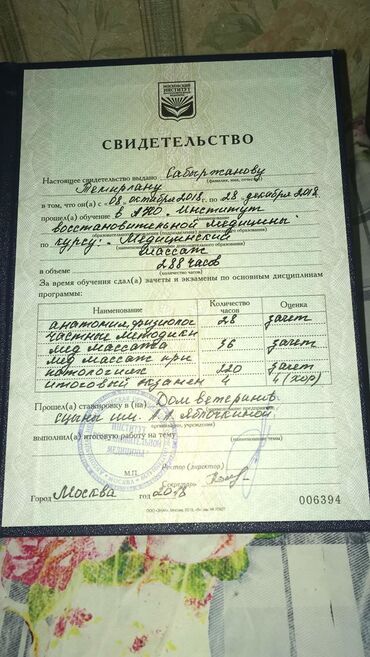 МОСКОВСКИЙ
ИНСТИТУТ
СВИДЕТЕЛЬСТВО
Настоящее свидетельство выдано Сабыржанову
(фамилия, имя, отчество)
Темирлану
в том, что он(а) с «08» октября 2018 г. по «28» декабря 2018
прошел(а) обучение в АНО. Институт
восстановительной медицины.
по курсу: Медицинский
массаж
в объеме 288 часов
(количество часов)
За время обучения сдал(а) зачеты и экзамены по основным дисциплинам
программы:
Наименование Количество часов Оценка
анатомия, физиолог 28 зачет
частные методики
мед массажа 36 зачет
мед массаж при
патологиях 220 зачет
итоговый экзамен 4 4 (хор)
Прошел(а) стажировку в (на) Дом ветеранов
сцены им. А.А. Яблочкиной
выполнил(а) итоговую работу на тему
(наименование темы)
М.П.
Ректор (директор)
Секретарь
Город Москва год 2018
006394